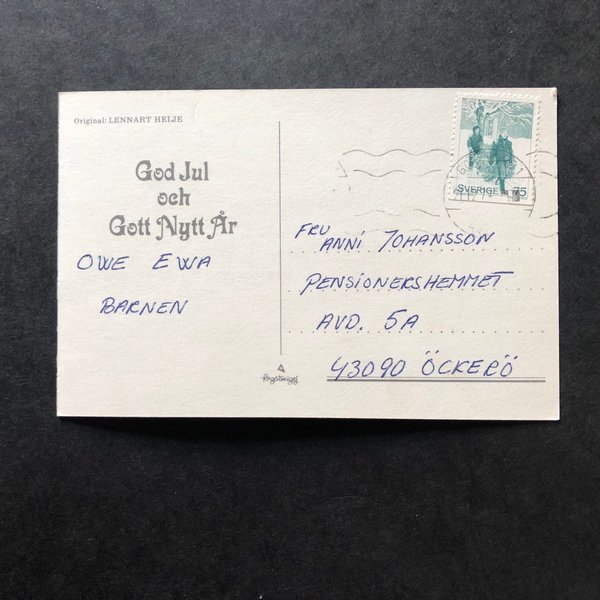 Original: LENNART HELJE
God Jul
och
Gott Nytt År
OWE EWA
BARNEN
SVERIGE 75
FRU ANNI JOHANSSON
PENSIONERSHEMMET
AVD. 5A
43090 ÖCKERÖ